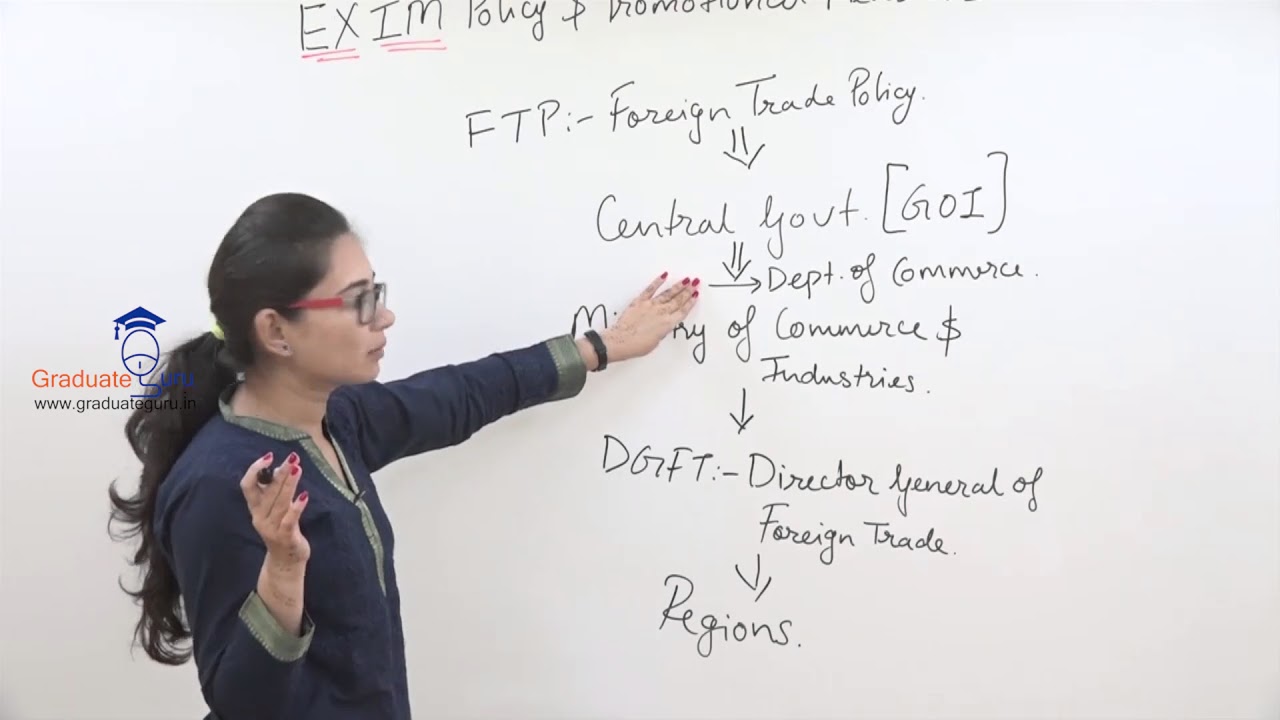 EXIM Policy $
FTP:- Foreign Trade Policy.
Central Govt. [GOI]
Dept. of Commerce.
of Commerce $
Industries.
DGFT:- Director General of
Foreign Trade.
Regions.
Graduate Guru
www.graduateguru.in